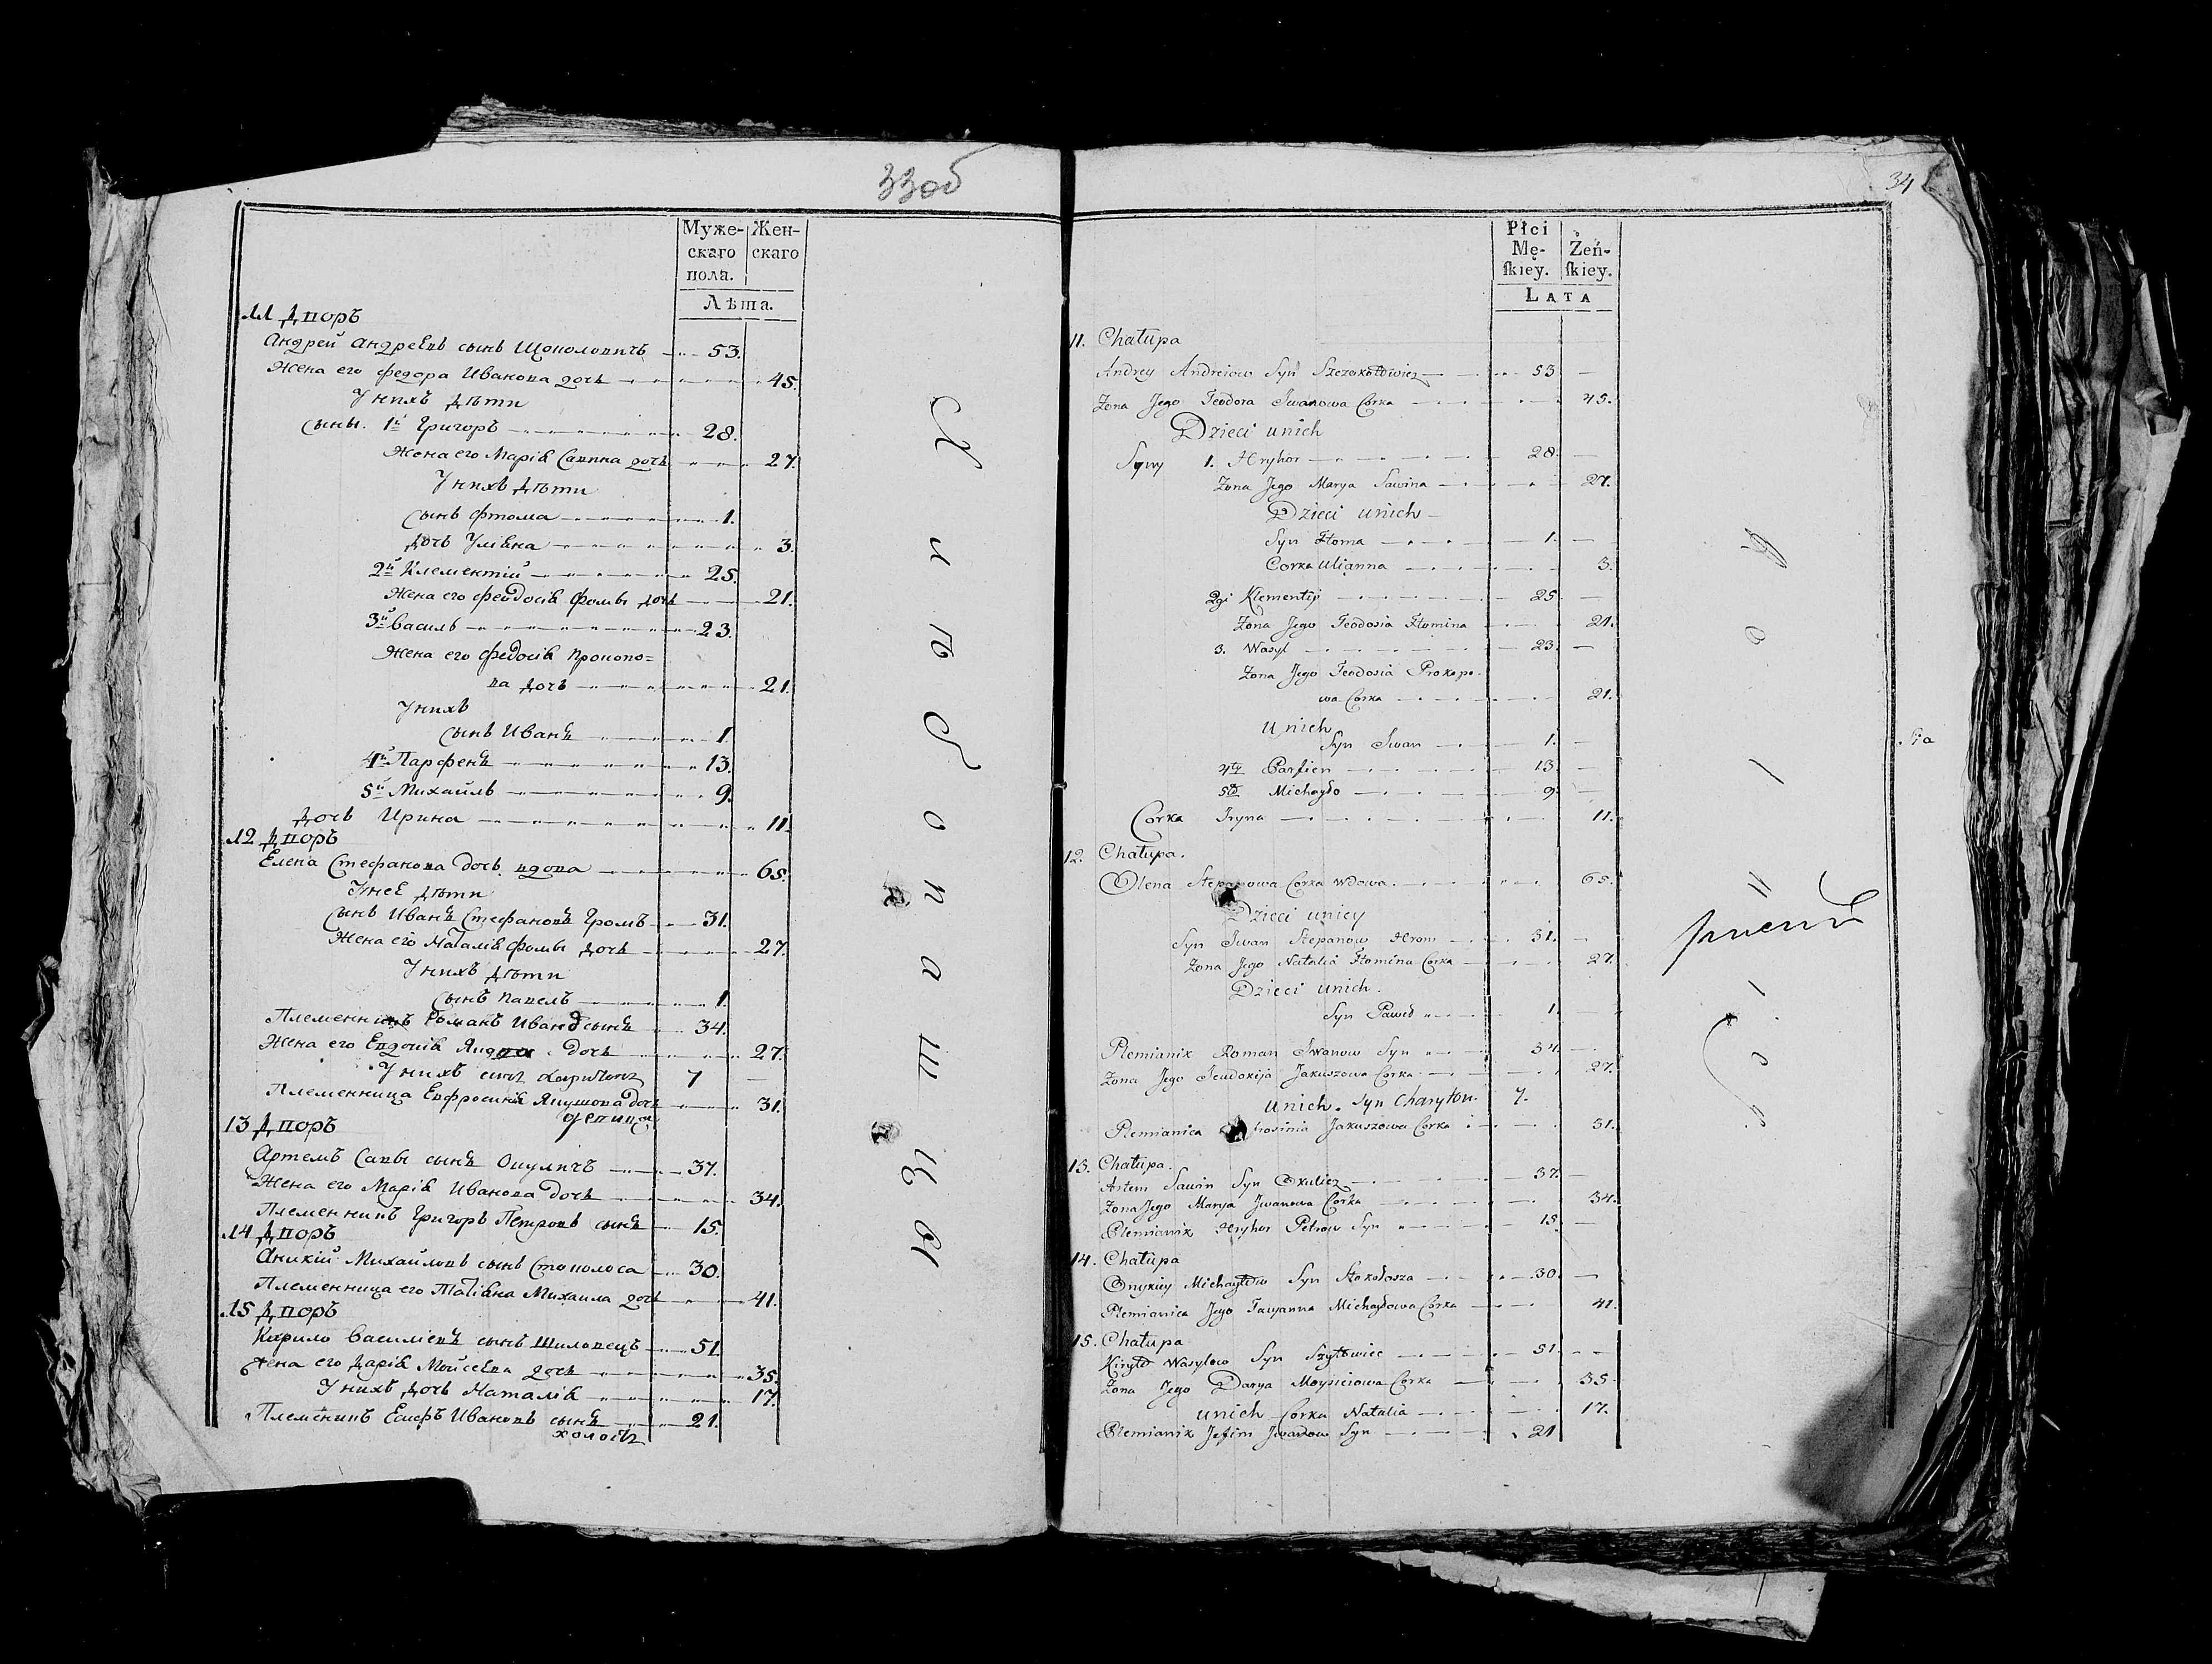 33об
Муже- Жен-
скаго скаго
пола.
Лѣта.
11 Дворъ
Андрей Андреевъ сынъ Щоколовичъ 53.
Жена его Федора Иванова дочь 45.
У нихъ дѣти
Сыны. 1й Григоръ 28.
Жена его Марія Савина дочь 27.
У нихъ дѣти
Сынъ Фтома 1.
Дочь Уліяна 3.
2й Клементій 25.
Жена его Феодосія Фомы дочь 21.
3й Василь 23.
Жена его Федосія Прокопо=
ва дочь 21.
У нихъ
Сынъ Иванъ 1.
4й Парфенъ 13.
5й Михайлъ 9.
Дочь Ирина 11.
12 Дворъ
Елена Стефанова дочь вдова 65.
У неё дѣти
Сынъ Иванъ Стефановъ Громъ 31.
Жена его Наталія Фомы дочь 27.
У нихъ дѣти
Сынъ Павелъ 1.
Племенникъ Романъ Иванов сынъ 34.
Жена его Евдокія дочь 27.
У нихъ сынъ Харитонъ 7
Племенница Евфросинія Якушова дочь 31.
девица
13 Дворъ
Артемъ Савы сынъ Окуличъ 37.
Жена его Марія Иванова дочь 34.
Племенникъ Григоръ Петровъ сынъ 15.
14 Дворъ
Аникій Михайловъ сынъ Стоколоса 30.
Племенница его Татіяна Михаила дочь 41.
15 Дворъ
Кирило Василіевъ сынъ Шиловецъ 51.
Жена его Дарія Мойсеева дочь 35.
У нихъ дочь Наталія 17.
Племенникъ Есифъ Ивановъ сынъ 21.
холостъ
34
Płci
Mę- Żeń-
ſkiey. ſkiey.
LATA
11. Chałupa
Andrey Andreiow Syn Szczokołowicz 53
Zona Jego Teodora Iwanowa Corka 45.
Dzieci unich
Syny 1. Hryhor 28.
Zona Jego Marya Sawina 27.
Dzieci unich
Syn Ftoma 1.
Corka Ulianna 3.
2gi Klementij 25
Zona Jego Teodosia Ftomina 21.
3. Wasyl 23.
Zona Jego Teodosia Prokopo-
wa Corka 21.
Unich
Syn Iwan 1.
4ty Parfien 13.
5ty Michayło 9.
Corka Iryna 11.
12. Chałupa.
Olena Stepanowa Corka Wdowa. 65.
Dzieci uniey
Syn Iwan Stepanow Hrom 31.
Zona Jego Natalia Ftomina Corka 27.
Dzieci unich.
Syn Paweł 1.
Plemianik Roman Iwanow Syn 34.
Zona Jego Jeudokija Jakuszowa Corka 27.
unich. Syn Charyton 7.
Plemianica Jakuszowa Corka 31.
13. Chałupa.
Artem Sawin Syn Okulicz 37.
Zona Jego Marya Iwanowa Corka 34.
Plemianik Hryhor Petrow Syn 15
14. Chałupa
Onykiy Michayłow Syn Stokołosza 30.
Plemianica Jego Tacyanna Michayłowa Corka 41.
15. Chałupa
Kiryło Wasylow Syn Szyłowiec 51
Zona Jego Darya Moysieiowa Corka 35
unich Corka Natalia 17.
Plemianik Jefim Iwanow Syn 21